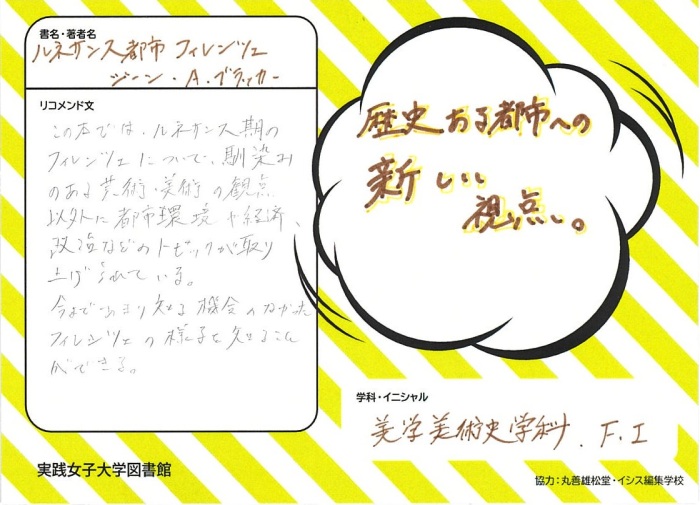 書名・著者名
ルネサンス都市 フィレンツェ
ジーン・A・ブラッカー
リコメンド文
この本では、ルネサンス期の
フィレンツェについて、馴染み
のある芸術・美術の観点
以外に都市環境や経済、
政治などのトピックが取り
上げられている。
今まであまり知る機会のなかった
フィレンツェの様子を知ること
ができる。
実践女子大学図書館
歴史ある都市への
新しい
視点。
学科・イニシャル
美学美術史学科. F.I
協力：丸善雄松堂・イシス編集学校